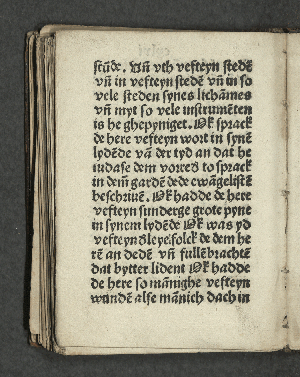 stūde. Vn̄ vth vefteyn stedē
vn̄ in vefteyn stedē vn̄ in so
vele steden synes lichāmes
vn̄ myt so vele instrumēten
is he ghepyniget. Ok sprack
de here vefteyn wort in synē
lydēde vā der tyd an dat he
iudase dem vorred to sprack
in dem̄ gardē de de ewāgelistē
beschriuē. Ok hadde de here
vefteyn sunderge grote pyne
in synem lydēde Ok was yd
vefteyn d'leye folck de dem he
rē an dedē vn̄ fullēbrachtē
dat bytter lident Ok hadde
de here so mānighe vefteyn
wundē alse mānich dach in